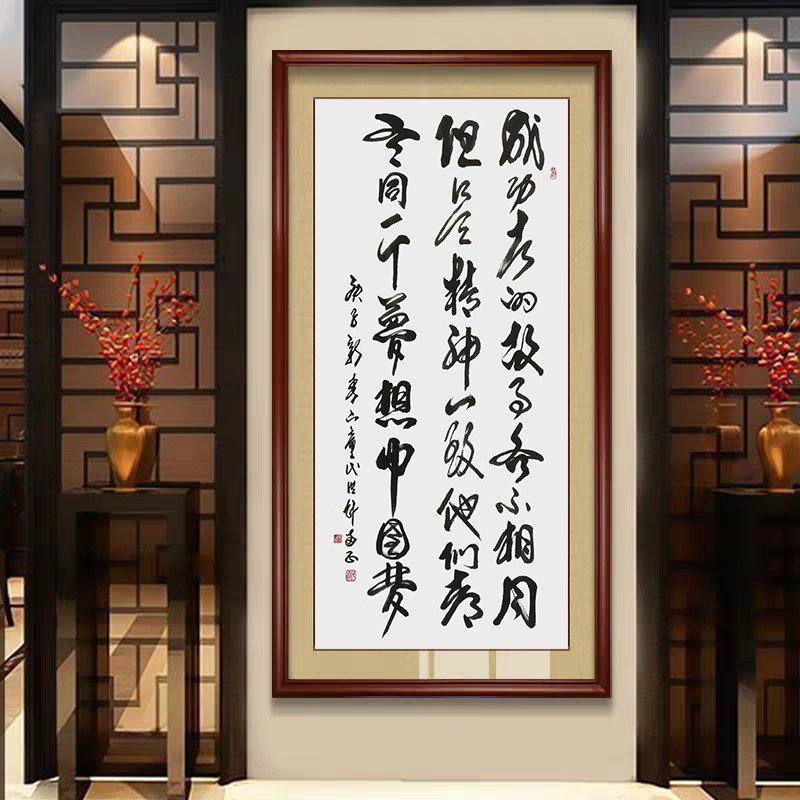 成功者的故事各不相同
但是精神一致他们都
同一个梦想中国梦
庚子新春